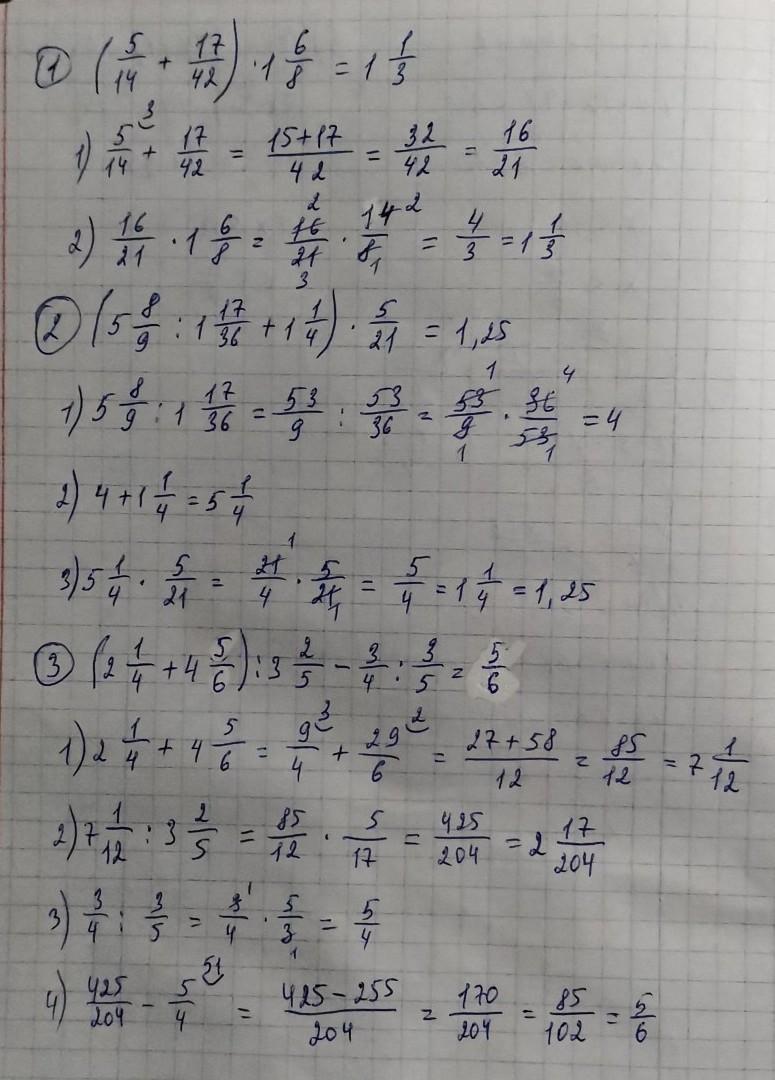 ① (5/14 + 17/42) · 1 6/8 = 1 1/3
1) 5/14 ³ + 17/42 = (15+17)/42 = 32/42 = 16/21
2) 16/21 · 1 6/8 = 16²/21₃ · 14²/8₁ = 4/3 = 1 1/3
② (5 8/9 : 1 17/36 + 1 1/4) · 5/21 = 1,25
1) 5 8/9 : 1 17/36 = 53/9 : 53/36 = 53¹/9₁ · 36⁴/53₁ = 4
2) 4 + 1 1/4 = 5 1/4
3) 5 1/4 · 5/21 = 21¹/4 · 5/21₁ = 5/4 = 1 1/4 = 1,25
③ (2 1/4 + 4 5/6) : 3 2/5 − 3/4 : 3/5 = 5/6
1) 2 1/4 + 4 5/6 = 9/4 ³ + 29/6 ² = (27+58)/12 = 85/12 = 7 1/12
2) 7 1/12 : 3 2/5 = 85/12 · 5/17 = 425/204 = 2 17/204
3) 3/4 : 3/5 = 3¹/4 · 5/3₁ = 5/4
4) 425/204 − 5/4 ⁵¹ = (425−255)/204 = 170/204 = 85/102 = 5/6